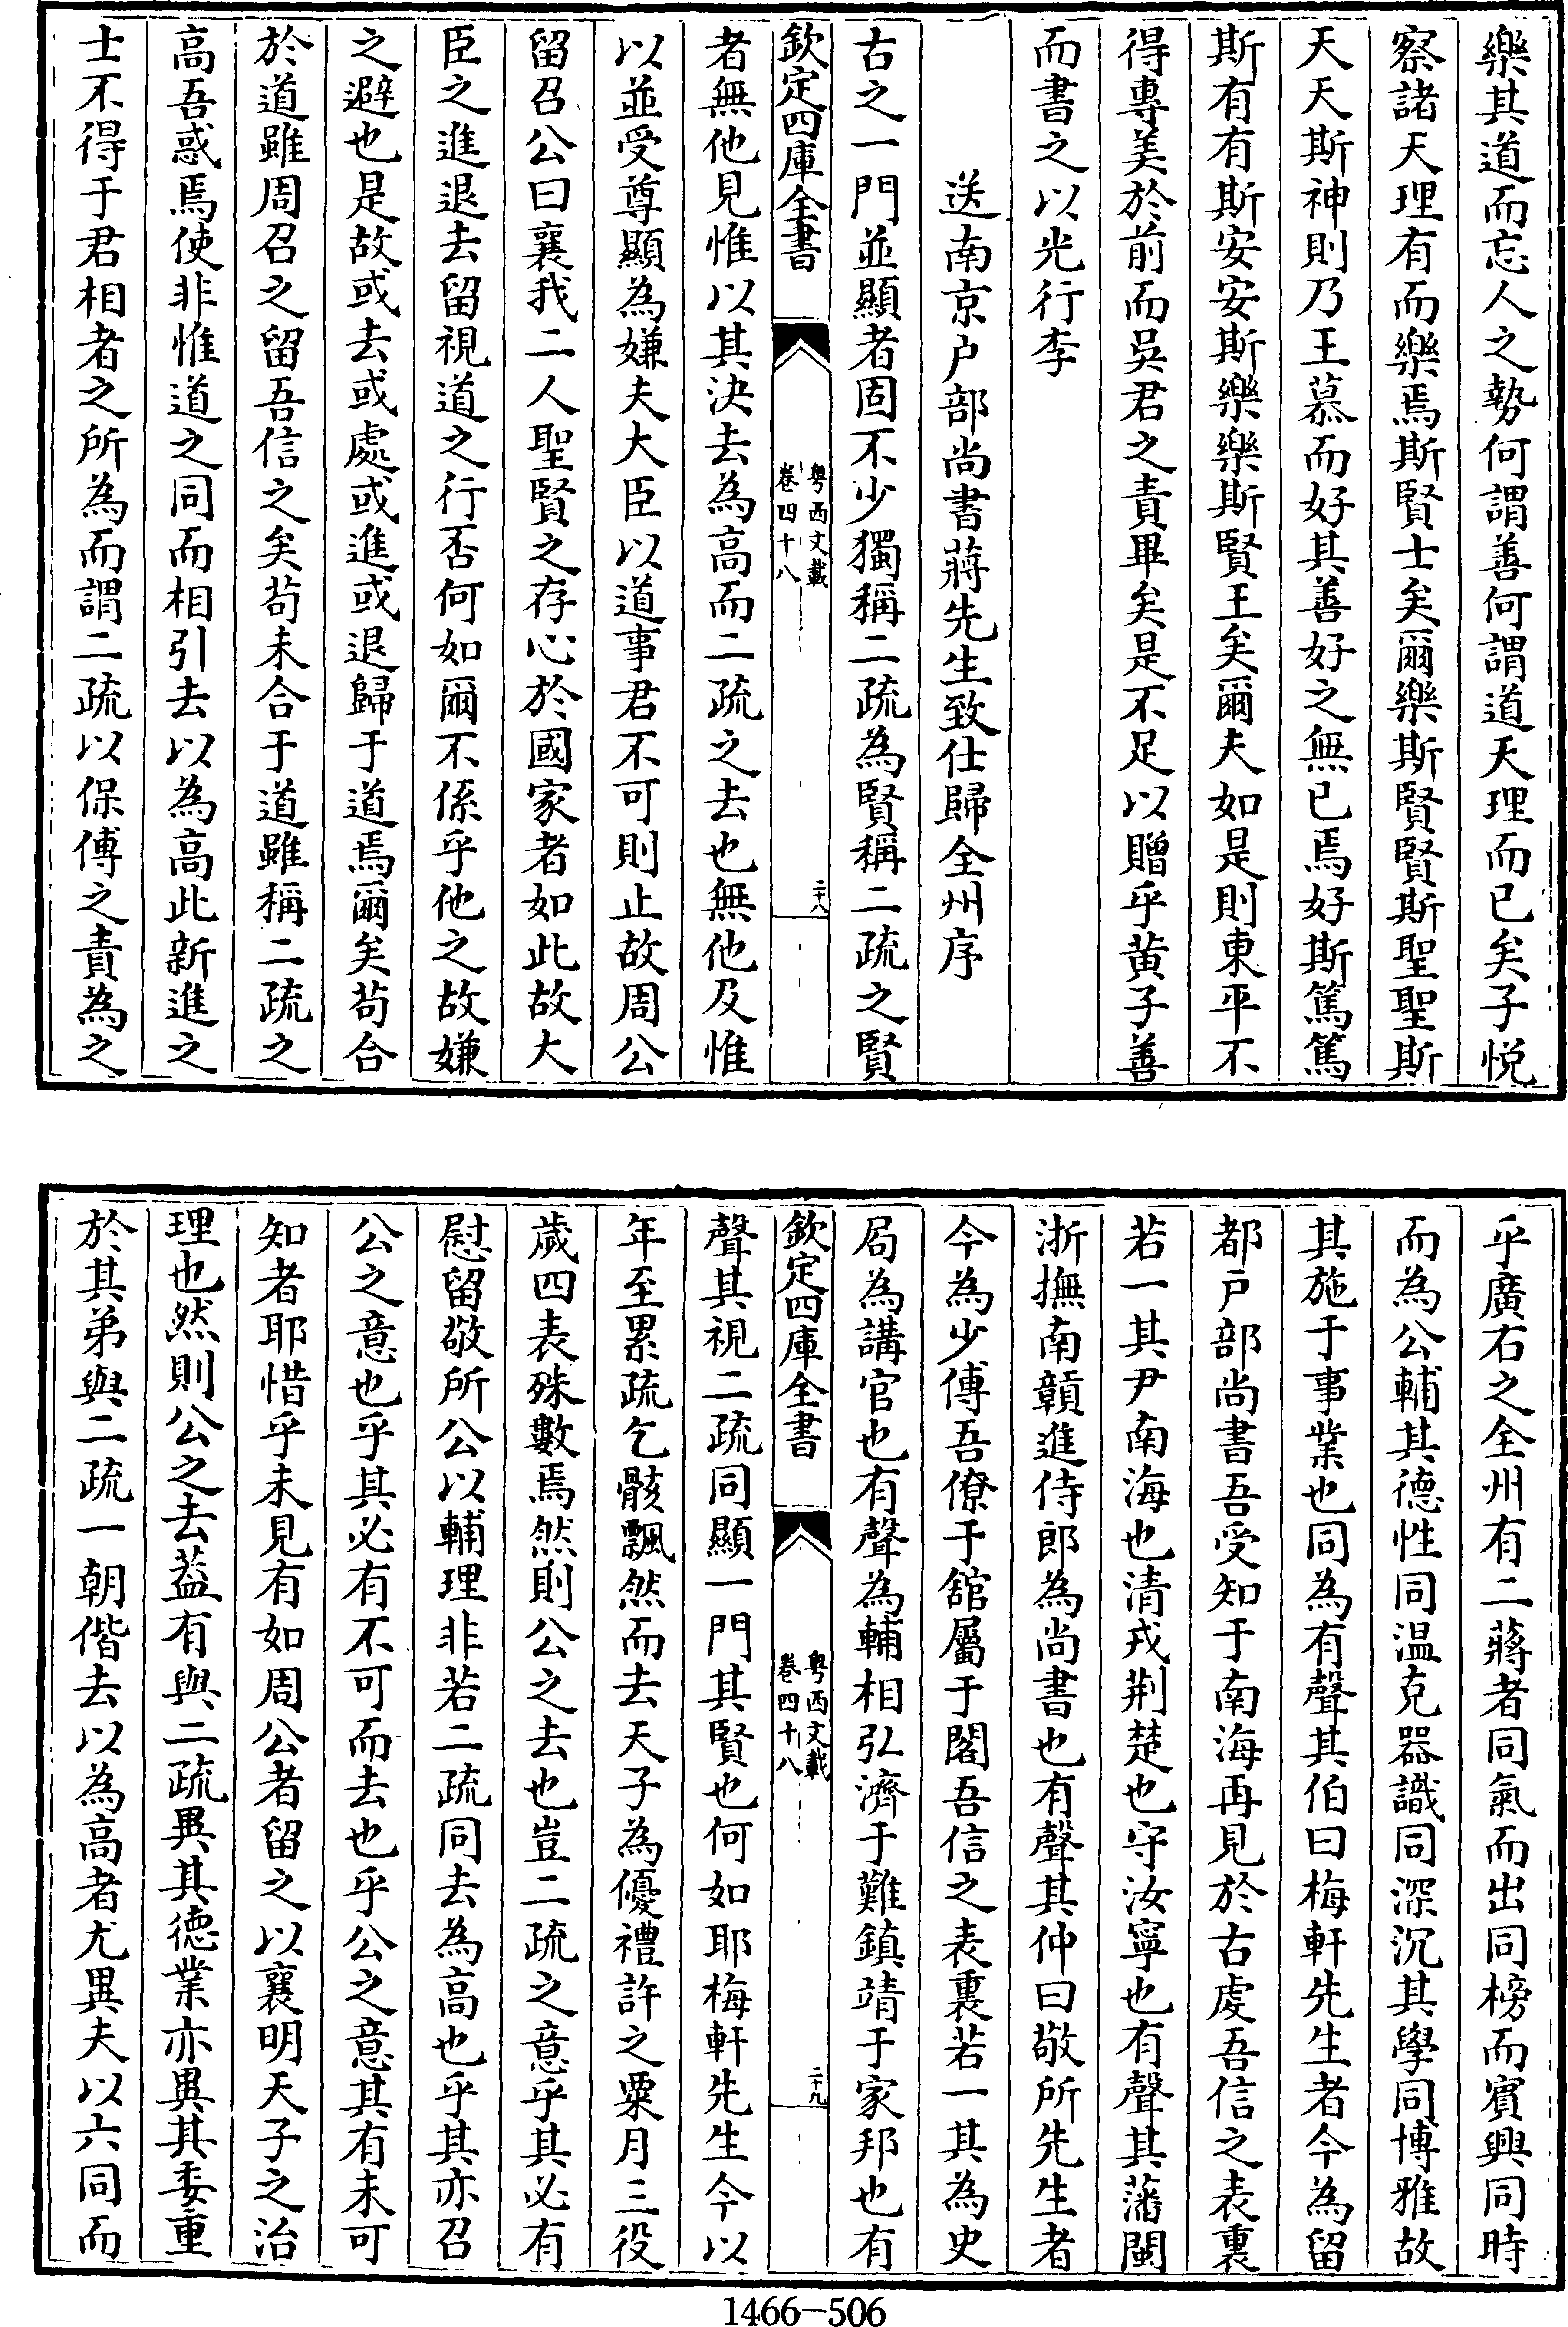 樂其道而忘人之勢何謂善何謂道天理而已矣子悅
察諸天理有而樂焉斯賢士矣爾樂斯賢賢斯聖聖斯
天天斯神則乃王慕而好其善好之無已焉好斯篤篤
斯有有斯安安斯樂樂斯賢王矣爾夫如是則東平不
得專美於前而吳君之責畢矣是不足以贈乎黄子善
而書之以光行李
送南京户部尚書蔣先生致仕歸全州序
古之一門並顯者固不少獨稱二疏為賢稱二疏之賢
欽定四庫全書
粤西文載
卷四十八
二十八
者無他見惟以其決去為高而二疏之去也無他及惟
以並受尊顯為嫌夫大臣以道事君不可則止故周公
留召公曰襄我二人聖賢之存心於國家者如此故大
臣之進退去留視道之行否何如爾不係乎他之故嫌
之避也是故或去或處或進或退歸于道焉爾矣苟合
於道雖周召之留吾信之矣苟未合于道雖稱二疏之
高吾惑焉使非惟道之同而相引去以為高此新進之
士不得于君相者之所為而謂二疏以保傅之責為之
乎廣右之全州有二蔣者同氣而出同榜而賓興同時
而為公輔其德性同温克器識同深沉其學同博雅故
其施于事業也同為有聲其伯曰梅軒先生者今為留
都户部尚書吾受知于南海再見於古䖏吾信之表裏
若一其尹南海也清戎荆楚也守汝寧也有聲其藩閩
浙撫南贑進侍郎為尚書也有聲其仲曰敬所先生者
今為少傅吾僚于舘屬于閣吾信之表裏若一其為史
局為講官也有聲為輔相弘濟于難鎮靖于家邦也有
欽定四庫全書
粤西文載
卷四十八
二十九
聲其視二疏同顯一門其賢也何如耶梅軒先生今以
年至累疏乞骸飄然而去天子為優禮許之粟月三役
歲四表殊數焉然則公之去也豈二疏之意乎其必有
慰留敬所公以輔理非若二疏同去為高也乎其亦召
公之意也乎其必有不可而去也乎公之意其有未可
知者耶惜乎未見有如周公者留之以襄明天子之治
理也然則公之去葢有與二疏異其德業亦異其委重
於其弟與二疏一朝偕去以為高者尤異夫以六同而
1466-506